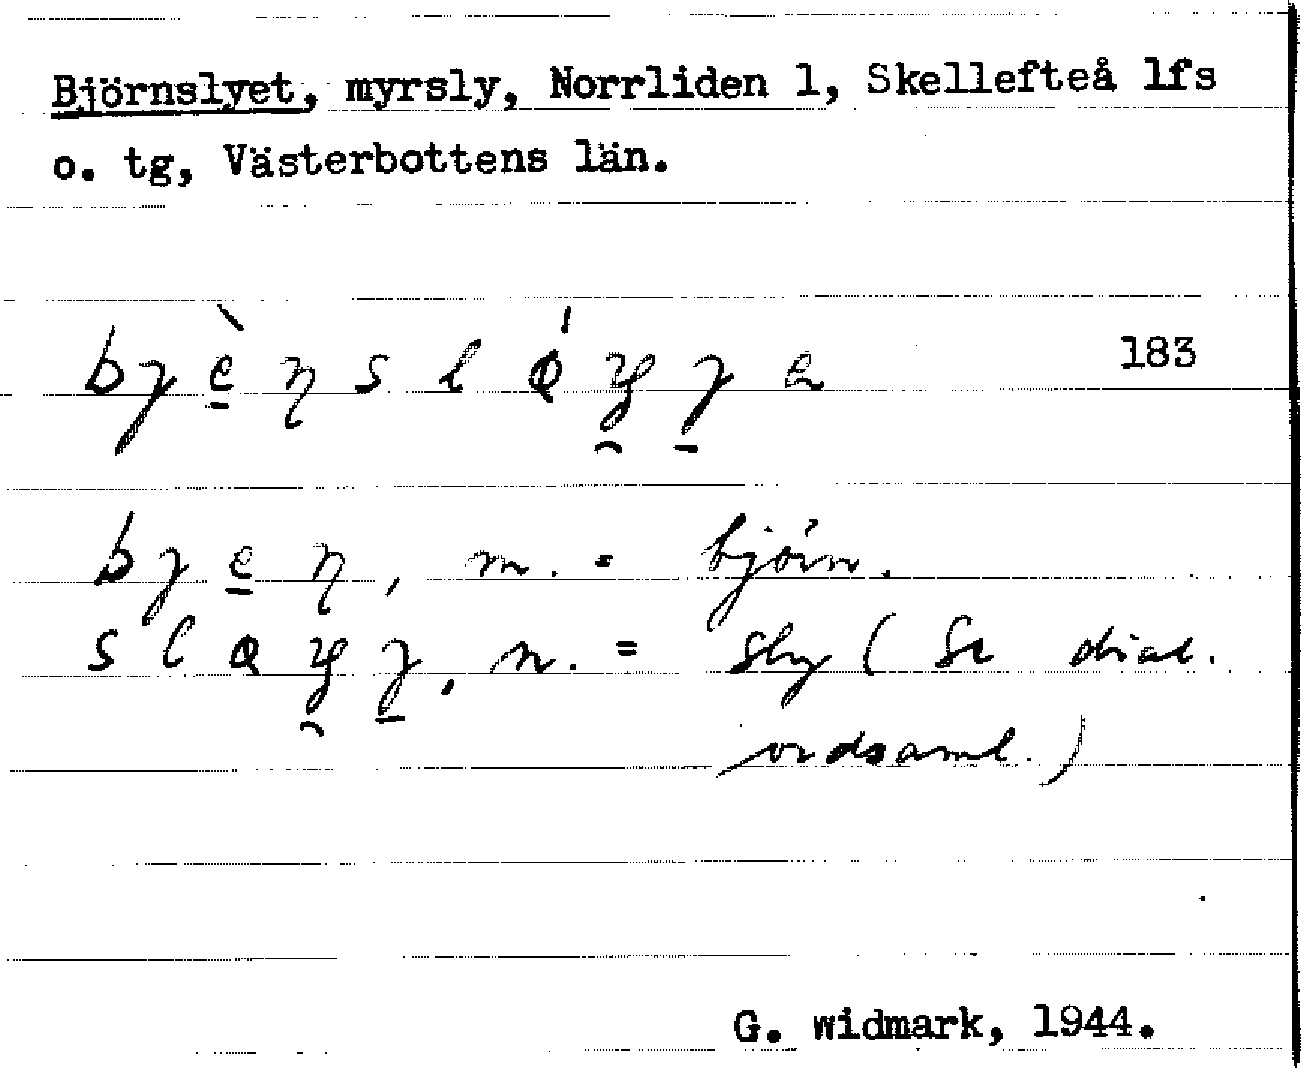 Björnslyet, myrsly, Norrliden 1, Skellefteå lfs
o. tg, Västerbottens län.
183
m. = björn.
n. = sly (Se dial.
ordsaml.)
G. widmark, 1944.